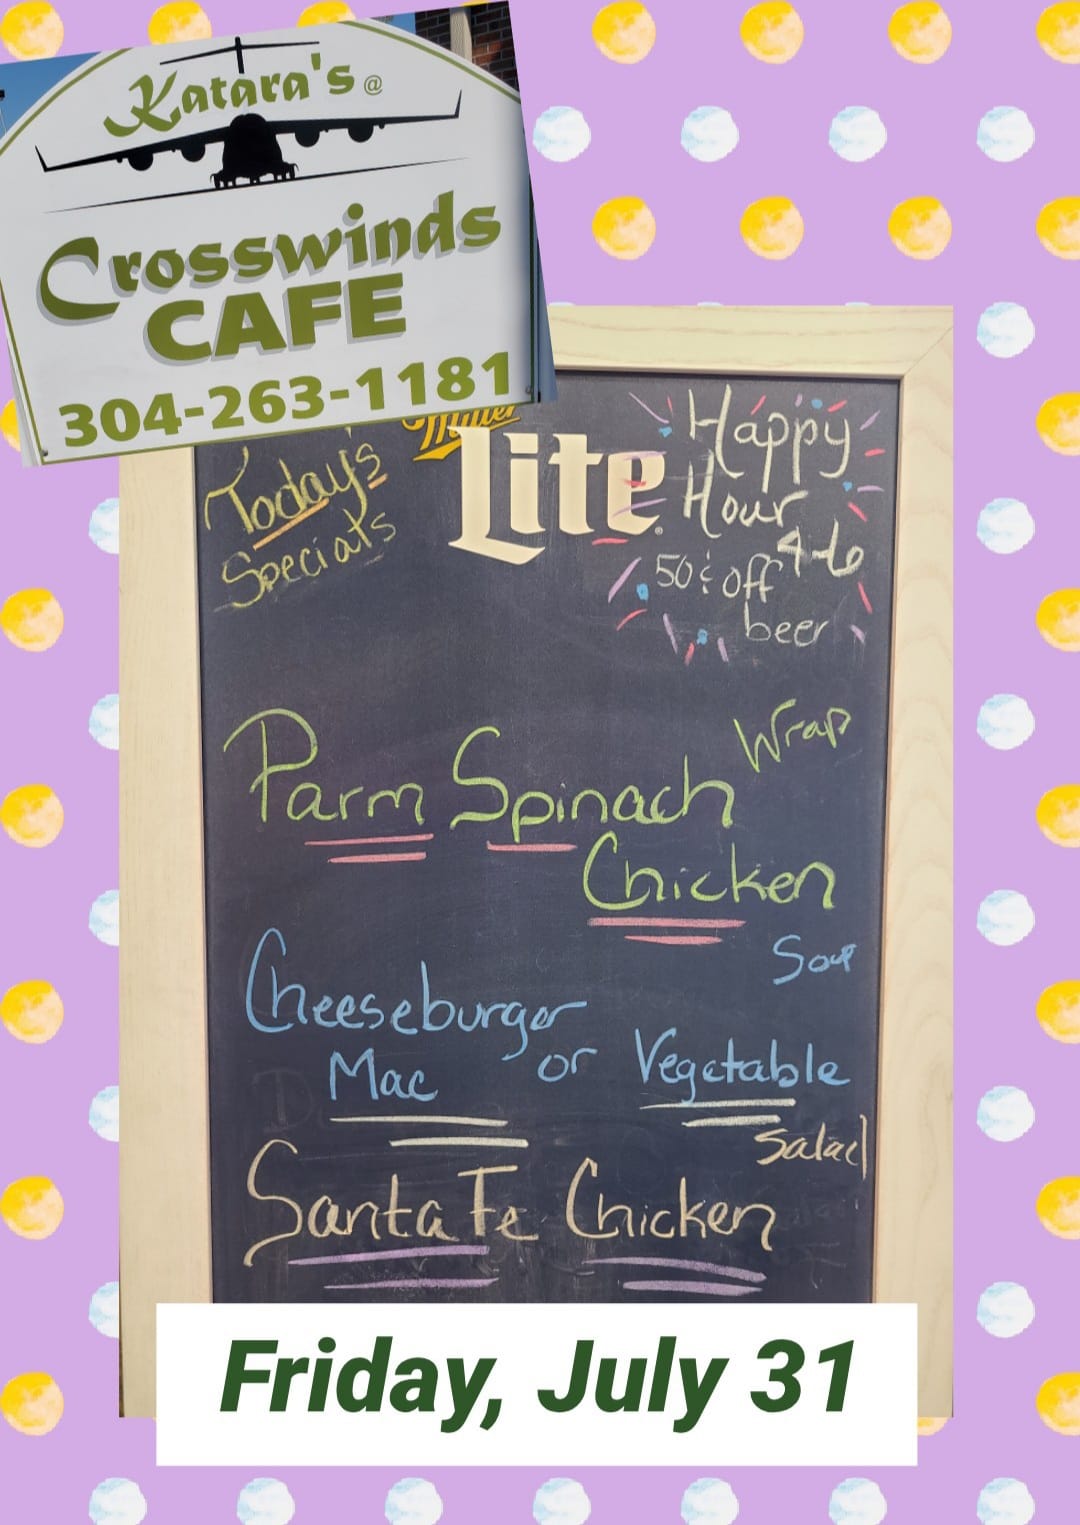 Katara's @
Crosswinds
CAFE
304-263-1181
Today's
Specials
Miller
Lite
Happy
Hour
4-6
50¢ off
beer
Wrap
Parm Spinach
Chicken
Soup
Cheeseburger
Mac or Vegetable
Salad
Santa Fe Chicken
Friday, July 31